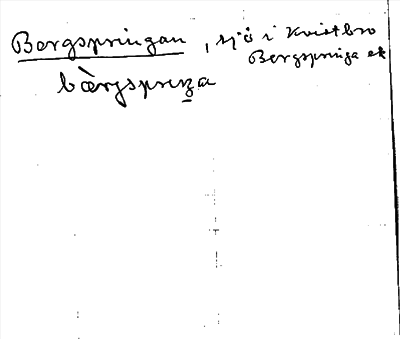 Bergspringan, sjö i Kvistbro
Bergspringa ek
bàrgspreꞑa